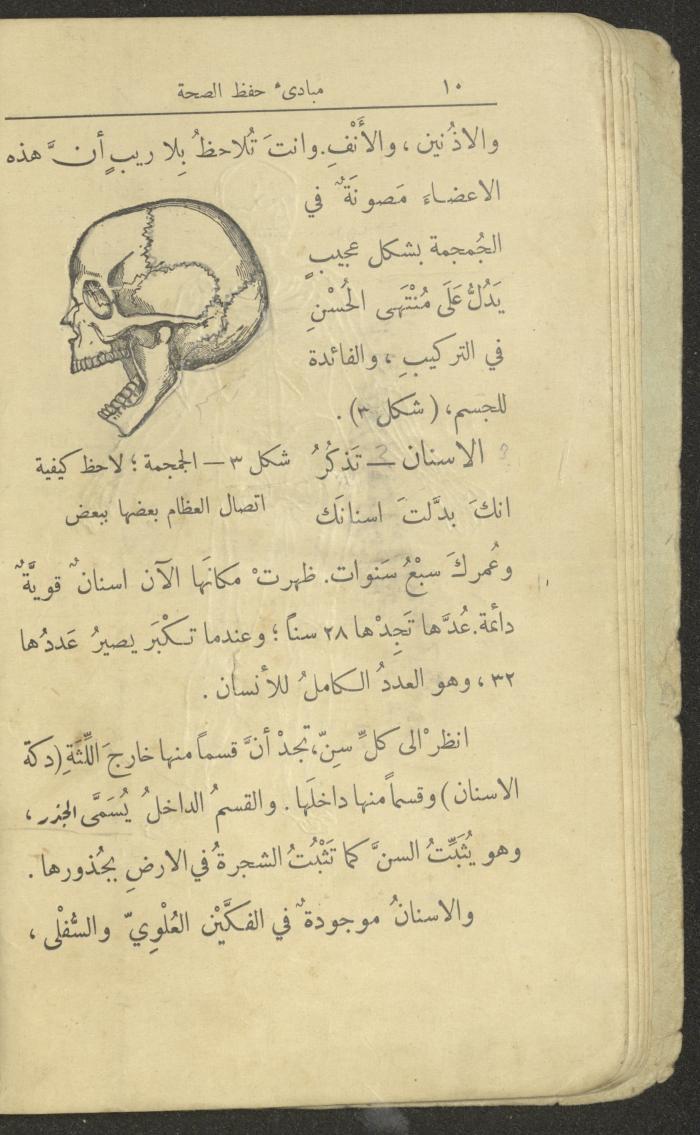 ١٠ مبادىء حفظ الصحة
والاذُنين ، والأَنْفِ. وانتَ تُلاحظُ بِلا ريبٍ أنَّ هذه
الاعضاءَ مَصونَةٌ في
الجُمجمة بشكل عجيبٍ
يَدُلُّ عَلَى مُنْتَهى الحُسْنِ
في التركيبِ ، والفائدة
للجسم، ( شكل ٣) .
الاسنان — تَذكُرُ
انكَ بدَّلتَ اسنانَك
شكل ٣ — الجمجمة ؛ لاحظ كيفية
اتصال العظام بعضها ببعض
وعُمركَ سبْعُ سَنوات. ظهرتْ مكانَها الآن اسنانٌ قويَّةٌ
دائمة. عُدَّها تَجِدْها ٢٨ سناً ؛ وعندما تكْبَر يصيرُ عَددُها
٣٢ ، وهو العددُ الكاملُ للأنسان .
انظرْ الى كلِّ سِنّ، تجدْ أنَّ قسماً منها خارجَ اللِّثَةِ (دكة
الاسنان) وقسماً منها داخلَها . والقسمُ الداخلُ يُسَمَّى الجذر ،
وهو يُثَبِّتُ السنَّ كما تَثْبُتُ الشجرةُ في الارضِ بجُذورها .
والاسنانُ موجودةٌ في الفكَّيْن العُلْوِيّ والسُّفْلى ،